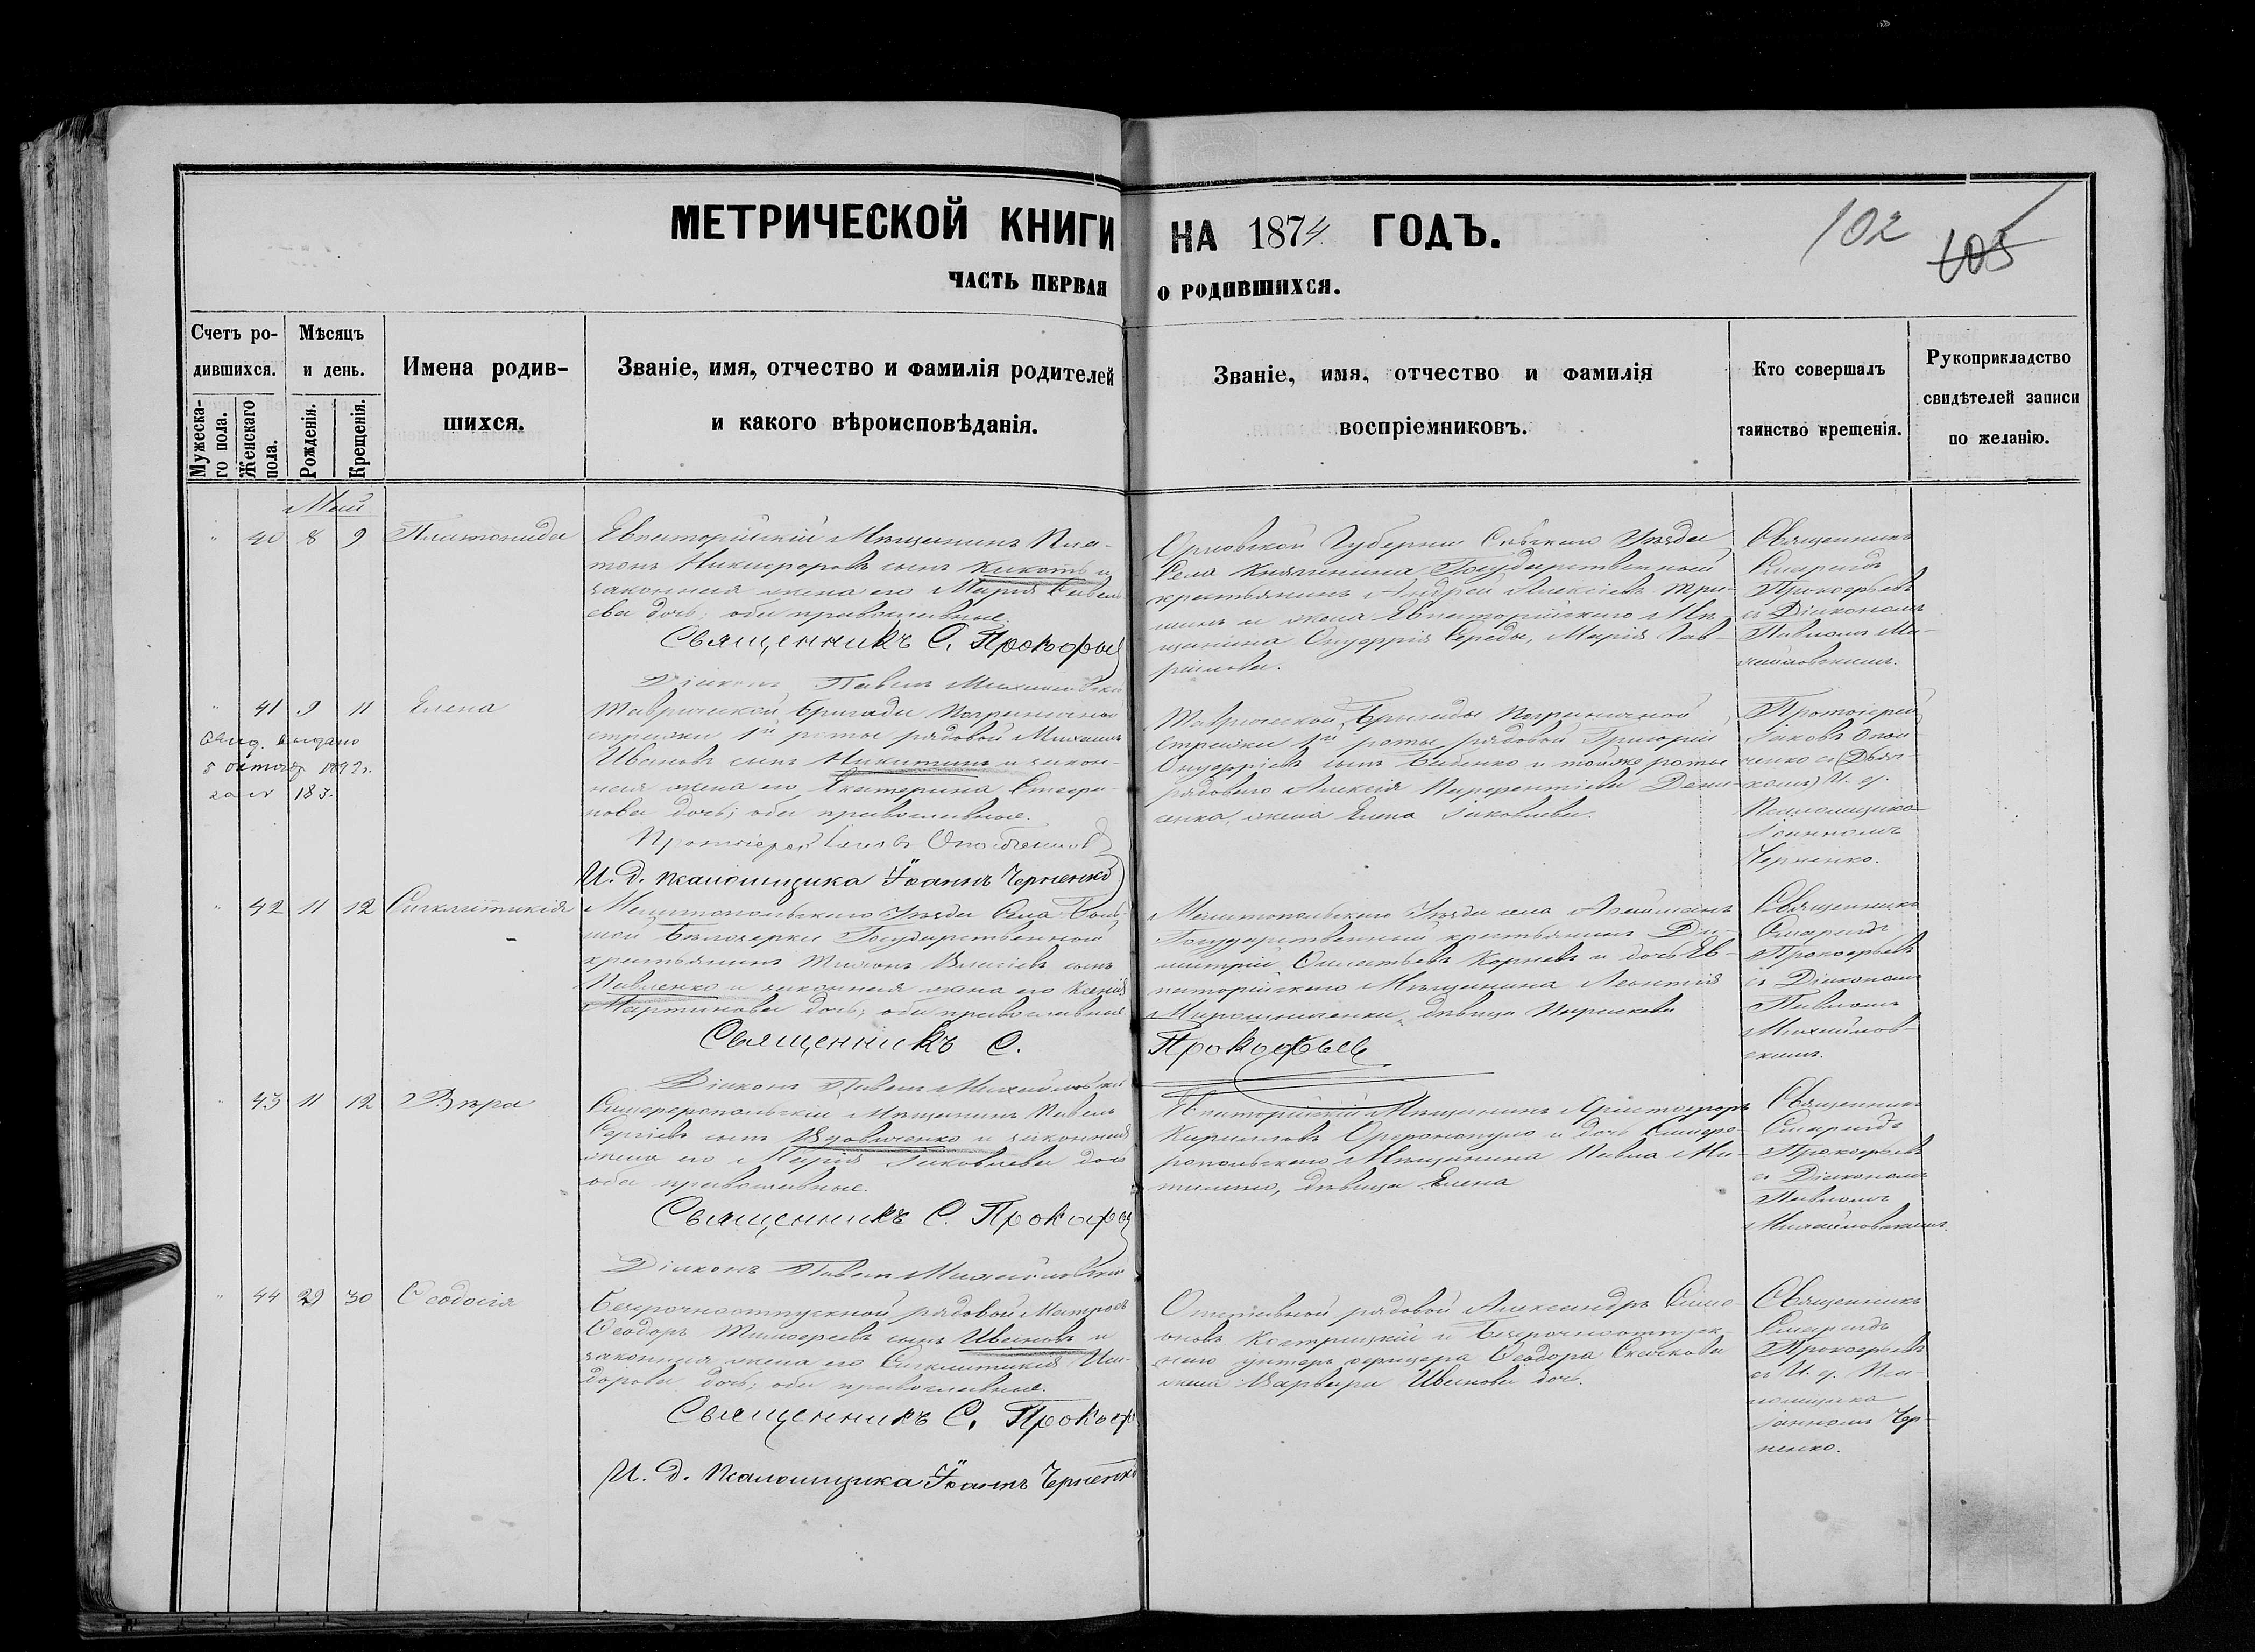 МЕТРИЧЕСКОЙ КНИГИ НА 1874 ГОДЪ.
102
105
ЧАСТЬ ПЕРВАЯ О РОДИВШИХСЯ.
Счетъ ро-
дившихся.
Мужеска-
го пола.
Женскаго
пола.
Мѣсяцъ
и день.
Рожденія.
Крещенія.
Имена родив-
шихся.
Званіе, имя, отчество и фамилія родителей
и какого вѣроисповѣданія.
Званіе, имя, отчество и фамилія
воспріемниковъ.
Кто совершалъ
таинство крещенія.
Рукоприкладство
свидѣтелей записи
по желанію.
Май
40 8 9 Платонида
Евпаторійскій Мѣщанинъ Пла-
тонъ Никифоровъ сынъ Кикоть и
законная жена его Марія Савель-
ева дочь; оба православные.
Священникъ С. Прокофьев
Діаконъ Павелъ Михайловскій
Орловской Губерніи Сѣвскаго Уѣзда
Села Княгинина Государственный
крестьянинъ Андрей Алексіевъ Три-
шинъ и жена Евпаторійскаго Мѣ-
щанина Онуфрія Середы, Марія Гав-
рилова.
Священникъ
Смарагдъ
Прокофьевъ
съ Діакономъ
Павломъ Ми-
хайловскимъ.
41 9 11 Елена
Свид. выдано
5 октября 1892 г.
за № 183.
Таврической бригады Пограничной
стражи 1й роты рядовой Михаилъ
Ивановъ сынъ Никитинъ и закон-
ная жена его Екатерина Стефа-
нова дочь; оба православные.
Протоіерей Іаковъ
И. д. псаломщика Іоаннъ Черненко
Таврической Бригады Пограничной
Стражи 1й роты рядовой Григорій
Онуфріевъ сынъ Бабенко и тойже роты
рядоваго Алексія Парфентіева Дени-
сенка, жена Елена Іаковлева.
Протоіерей
Іаковъ
И. д.
Псаломщика
Іоанномъ
Черненко.
42 11 12 Сигклитикія
Мелитопольскаго Уѣзда Села Боль-
шой Бѣлозерки Государственный
крестьянинъ Власіевъ сынъ
Павленко и законная жена его Ксенія
Мартинова дочь; оба православные
Священникъ С. Прокофьев
Діаконъ Павелъ Михайловскій
Мелитопольскаго Уѣзда села
Государственный крестьянинъ Ди-
митрій Корнев и дочь Ев-
паторійскаго Мѣщанина Леонтія
Мирошниченка, дѣвица Параскева
Священникъ
Смарагдъ
Прокофьевъ
съ Діакономъ
Павломъ
Михайлов-
скимъ.
43 11 12 Вѣра
Симферопольскій Мѣщанинъ Павелъ
Сергіевъ сынъ Вдовиченко и законная
жена его Марія Іаковлева дочь
оба православные.
Священникъ С. Прокофьев
Діаконъ Павелъ Михайловскій
Евпаторійскій Мѣщанинъ
Кирилловъ и дочь Симфе-
ропольскаго Мѣщанина Павла Ми-
дѣвица Елена
Священникъ
Смарагдъ
Прокофьевъ
съ Діакономъ
Павломъ
Михайловскимъ.
44 29 30 Ѳеодосія
Безсрочноотпускной рядовой Матросъ
Ѳеодоръ Тимофеевъ сынъ Ивановъ и
законная жена его Сигклитикія Иси-
дорова дочь; оба православные.
Священникъ С. Прокоф
И. д. псаломщика Іоаннъ Черненко
Отставной рядовой Александръ Симе-
оновъ Кострицкій и Безсрочноотпуск-
наго унтеръ офицера Ѳеодора Скачкова
жена Варвара Иванова дочь.
Священникъ
Смарагдъ
Прокофьевъ
съ И. д. Пса-
ломщика
Іоанномъ Чер-
ненко.